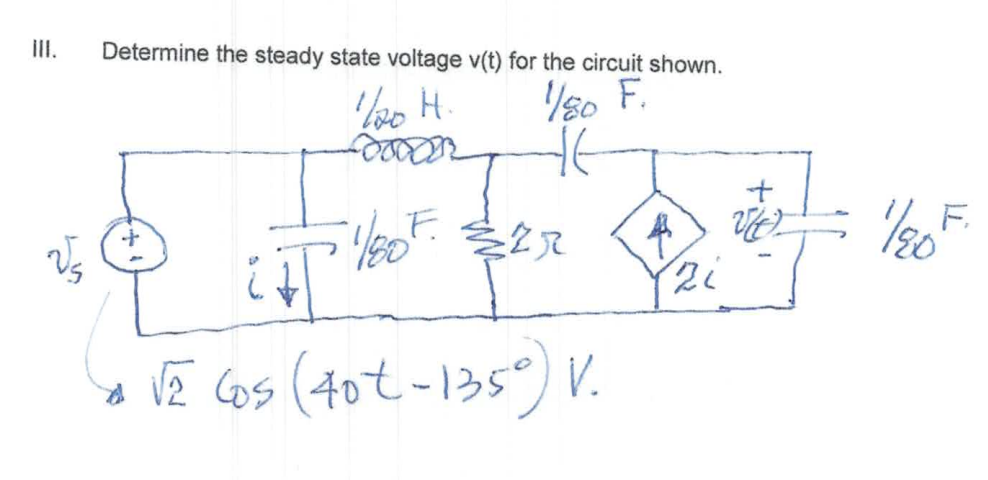 III. Determine the steady state voltage v(t) for the circuit shown.
1/20 H. 1/80 F.
+ - vs
i 1/80 F.
2Ω
2i
+ v(t) -
1/80 F.
√2 Cos (40t - 135°) V.